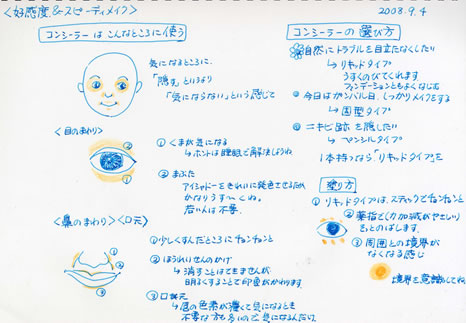 <好感度&スピーディメイク>
2008.9.4
コンシーラーはこんなところに使う
気になるところに
「隠す」というより
「気にならない」という感じで
<目のまわり>
① くまが気になる
↳ホントは睡眠で解決しようね
② まぶた
アイシャドーをきれいに発色させるため
かなりうす〜くね。
若い人は不要。
①
②
<鼻のまわり><口元>
① 少しくすんだところにチョンチョンと
② ほうれいせんのかげ
↳消すことはできませんが
明るくすることで印象がかわります
③ 口元
↳唇の色素が濃くて気になるとき
不要な方も多いので気になる人だけ。
①
②
③
コンシーラーの選び方
自然にトラブルを目立たなくしたい
↳リキッドタイプ
うすくのびてくれます
ファンデーションともよくなじむ
今日はガンバル日、しっかりメイクする
↳固型タイプ
ニキビ跡を隠したい
↳ペンシルタイプ
1本持つなら「リキッドタイプを
塗り方
① リキッドタイプは、スティックでチョンチョンと
② 薬指で(力加減がやさしい)
をとのばします。
③ 周囲との境界が
なくなる感じ
境界を意識してね